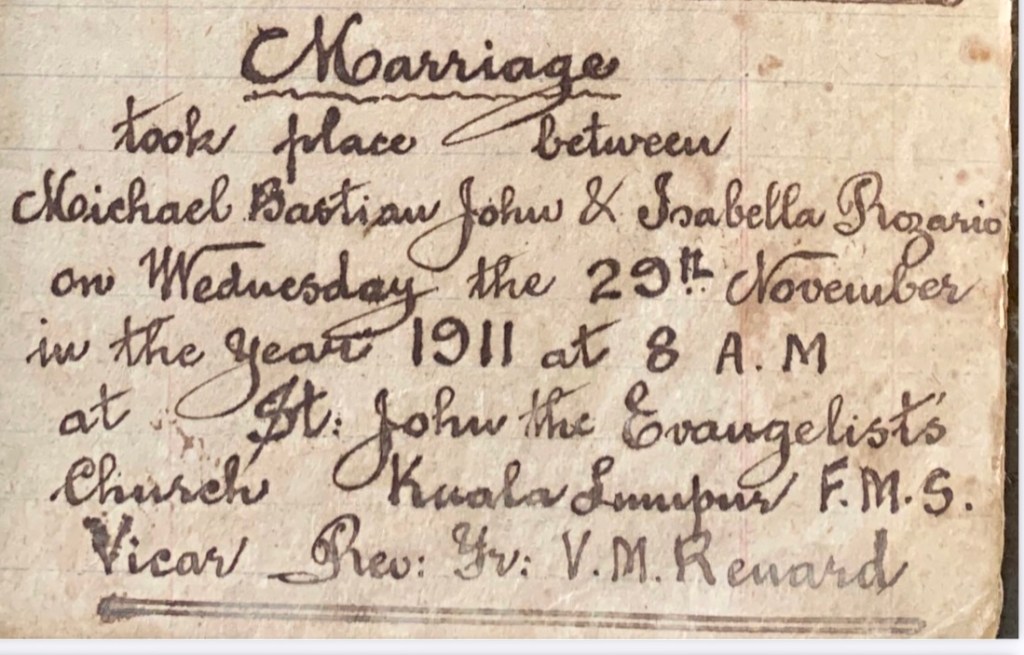 Marriage
took place between
Michael Bastian John & Isabella Rozario
on Wednesday the 29th November
in the year 1911 at 8 A.M
at St: John the Evangelist's
Church Kuala Lumpur F.M.S.
Vicar Rev: Fr: V.M. Renard